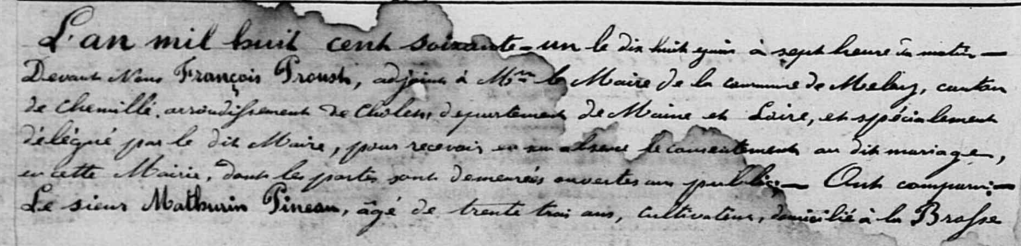 L'an mil huit cent soixante-un le dix huit juin à sept heure du matin —
Devant Nous François Proust, adjoint à Mr le Maire de la commune de Melay, canton
de Chemillé, arrondissement de Cholet, département de Maine et Loire, et spécialement
délégué par le dit Maire, pour recevoir en son absence le consentement au dit mariage,
en cette Mairie, dont les portes sont demeurées ouvertes au public — Ont comparu :—
Le sieur Mathurin Pineau, âgé de trente trois ans, cultivateur, domicilié à la Brosse